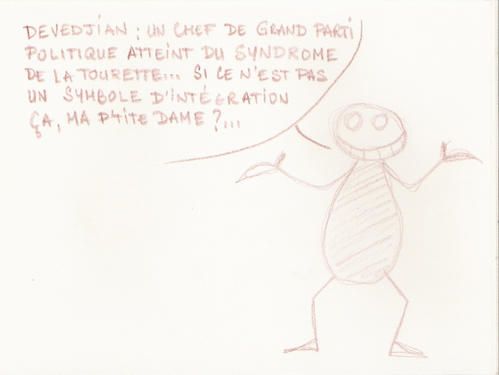 DEVEDJIAN : UN CHEF DE GRAND PARTI
POLITIQUE ATTEINT DU SYNDROME
DE LA TOURETTE... SI CE N'EST PAS
UN SYMBOLE D'INTÉGRATION
ÇA, MA P'TITE DAME ?...